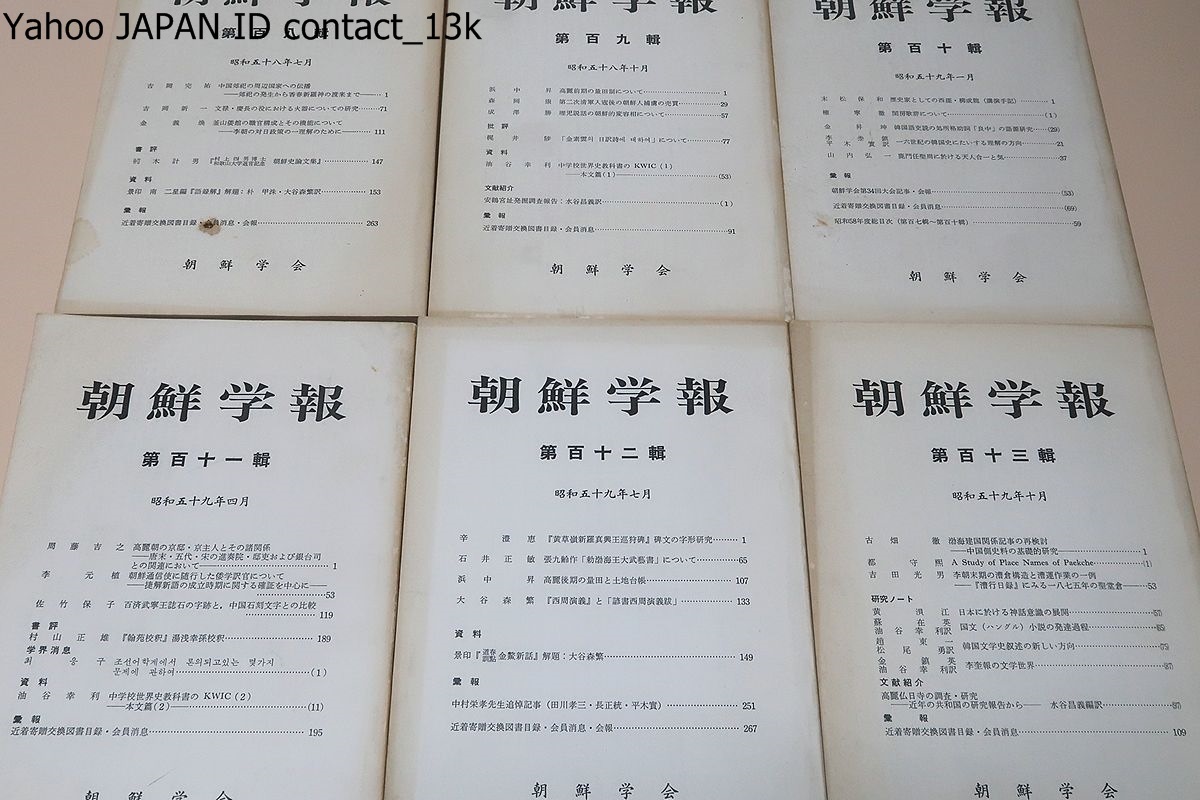 Yahoo JAPAN ID contact_13k
朝鮮学報
第百八輯
昭和五十八年七月
吉岡完祐 中国郊祀の周辺国家への伝播
——郊祀の発生から香春新羅神の渡来まで—— 1
吉岡新一 文禄・慶長の役における火器についての研究 71
金義煥 釜山倭館の職官構成とその機能について
——李朝の対日政策の一理解のために—— 111
書評
朝鮮史論文集』 147
資料
景印 南二星編『語録解』解題:朴甲洙・大谷森繁訳 153
彙報
近着寄贈交換図書目録・会員消息・会報 263
朝鮮学会
朝鮮学報
第百九輯
昭和五十八年十月
浜中昇 高麗前期の量田制について 1
森岡康 第二次清軍入寇後の朝鮮人捕虜の売買 29
成澤勝 壇児説話の朝鮮的変容相について 57
批評
梶井陟 「金素雲의 日訳詩에 대하여」について 77
資料
油谷幸利 中学校世界史教科書の KWIC(1)
——本文篇(1)—— (53)
文献紹介
安鶴宮址発掘調査報告:水谷昌義訳 (1)
彙報
近着寄贈交換図書目録・会員消息 91
朝鮮学会
朝鮮学報
第百十輯
昭和五十九年一月
末松保和 歴史家としての西厓・柳成龍(講演手記) 1
権寧徹 閨房歌辞について (1)
金昇坤 韓国語史読の処所格助詞「良中」の語源研究 (29)
李泰鎮
平木實訳 一六世紀の韓国史にたいする理解の方向 21
山内弘一 鹿門任聖周に於ける天人合一と気 37
彙報
朝鮮学会第34回大会記事・会報 (53)
近着寄贈交換図書目録・会員消息 (69)
昭和58年度総目次(第百七輯〜第百十輯) 59
朝鮮学会
朝鮮学報
第百十一輯
昭和五十九年四月
周藤吉之 高麗朝の京邸・京主人とその諸関係
——唐末・五代・宋の進奏院・邸吏および銀台司
との関連において—— 1
李元植 朝鮮通信使に随行した倭学訳官について
——捷解新語の成立時期に関する確証を中心に——
53
佐竹保子 百済武寧王誌石の字跡と,中国石刻文字との比較
119
書評
村山正雄 『翰苑校釈』湯浅幸孫校釈 189
学界消息
최응구 조선어학계에서 론의되고있는 몇가지
문제에 관하여 (1)
資料
油谷幸利 中学校世界史教科書の KWIC(2)
——本文篇(2)—— (11)
彙報
近着寄贈交換図書目録・会員消息 195
朝鮮学会
朝鮮学報
第百十二輯
昭和五十九年七月
辛澄恵 『黄草嶺新羅真興王巡狩碑』碑文の字形研究 1
石井正敏 張九齢作「勅渤海王大武藝書」について 65
浜中昇 高麗後期の量田と土地台帳 107
大谷森繁 『西周演義』と「諺書西周演義跋」 133
資料
景印『道春訓點金鰲新話』解題:大谷森繁 149
彙報
中村栄孝先生追悼記事(田川孝三・長正統・平木實) 251
近着寄贈交換図書目録・会員消息・会報 267
朝鮮学会
朝鮮学報
第百十三輯
昭和五十九年十月
古畑徹 渤海建国関係記事の再検討
——中国側史料の基礎的研究—— 1
都守熙 A Study of Place Names of Paekche (1)
吉田光男 李朝末期の漕倉構造と漕運作業の一例
——『漕行日録』にみる一八七五年の聖堂倉—— 53
研究ノート
黄浿江 日本に於ける神話意識の展開 (57)
蘇在英
油谷幸利訳 国文(ハングル)小説の発達過程 (65)
趙東一
松尾勇訳 韓国文学史叙述の新しい方向 (75)
金鎮英
油谷幸利訳 李奎報の文学世界 (87)
文献紹介
高麗仏日寺の調査・研究
——近年の共和国の研究報告から—— 水谷昌義編訳 (97)
彙報
近着寄贈交換図書目録・会員消息 109
朝鮮学会